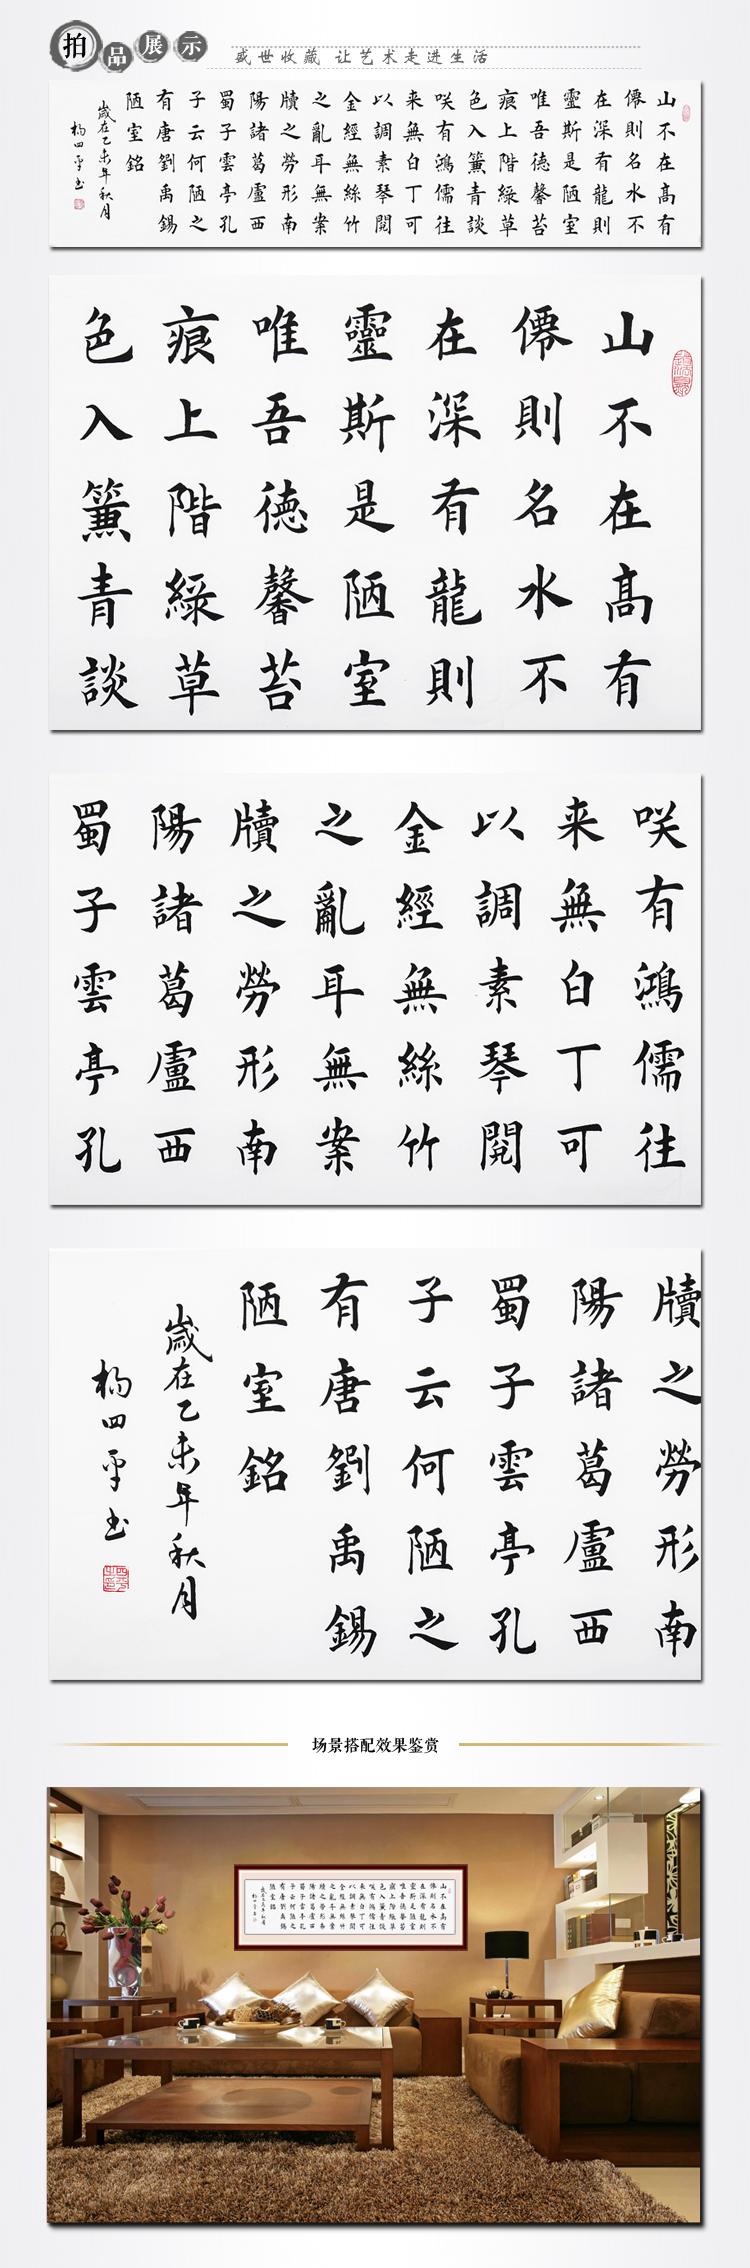 拍品展示
盛世收藏 让艺术走进生活
山不在髙有
僊則名水不
在深有龍則
靈斯是陋室
唯吾德馨苔
痕上階緑草
色入簾青談
咲有鴻儒往
来無白丁可
以調素琴閲
金經無絲竹
之亂耳無案
牘之勞形南
陽諸葛盧西
蜀子雲亭孔
子云何陋之
有唐劉禹錫
陋室銘
歲在乙未年秋月
楊四平书
山不在髙有
僊則名水不
在深有龍則
靈斯是陋室
唯吾德馨苔
痕上階緑草
色入簾青談
咲有鴻儒往
来無白丁可
以調素琴閲
金經無絲竹
之亂耳無案
牘之勞形南
陽諸葛盧西
蜀子雲亭孔
牘之勞形南
陽諸葛盧西
蜀子雲亭孔
子云何陋之
有唐劉禹錫
陋室銘
歲在乙未年秋月
楊四平书
场景搭配效果鉴赏